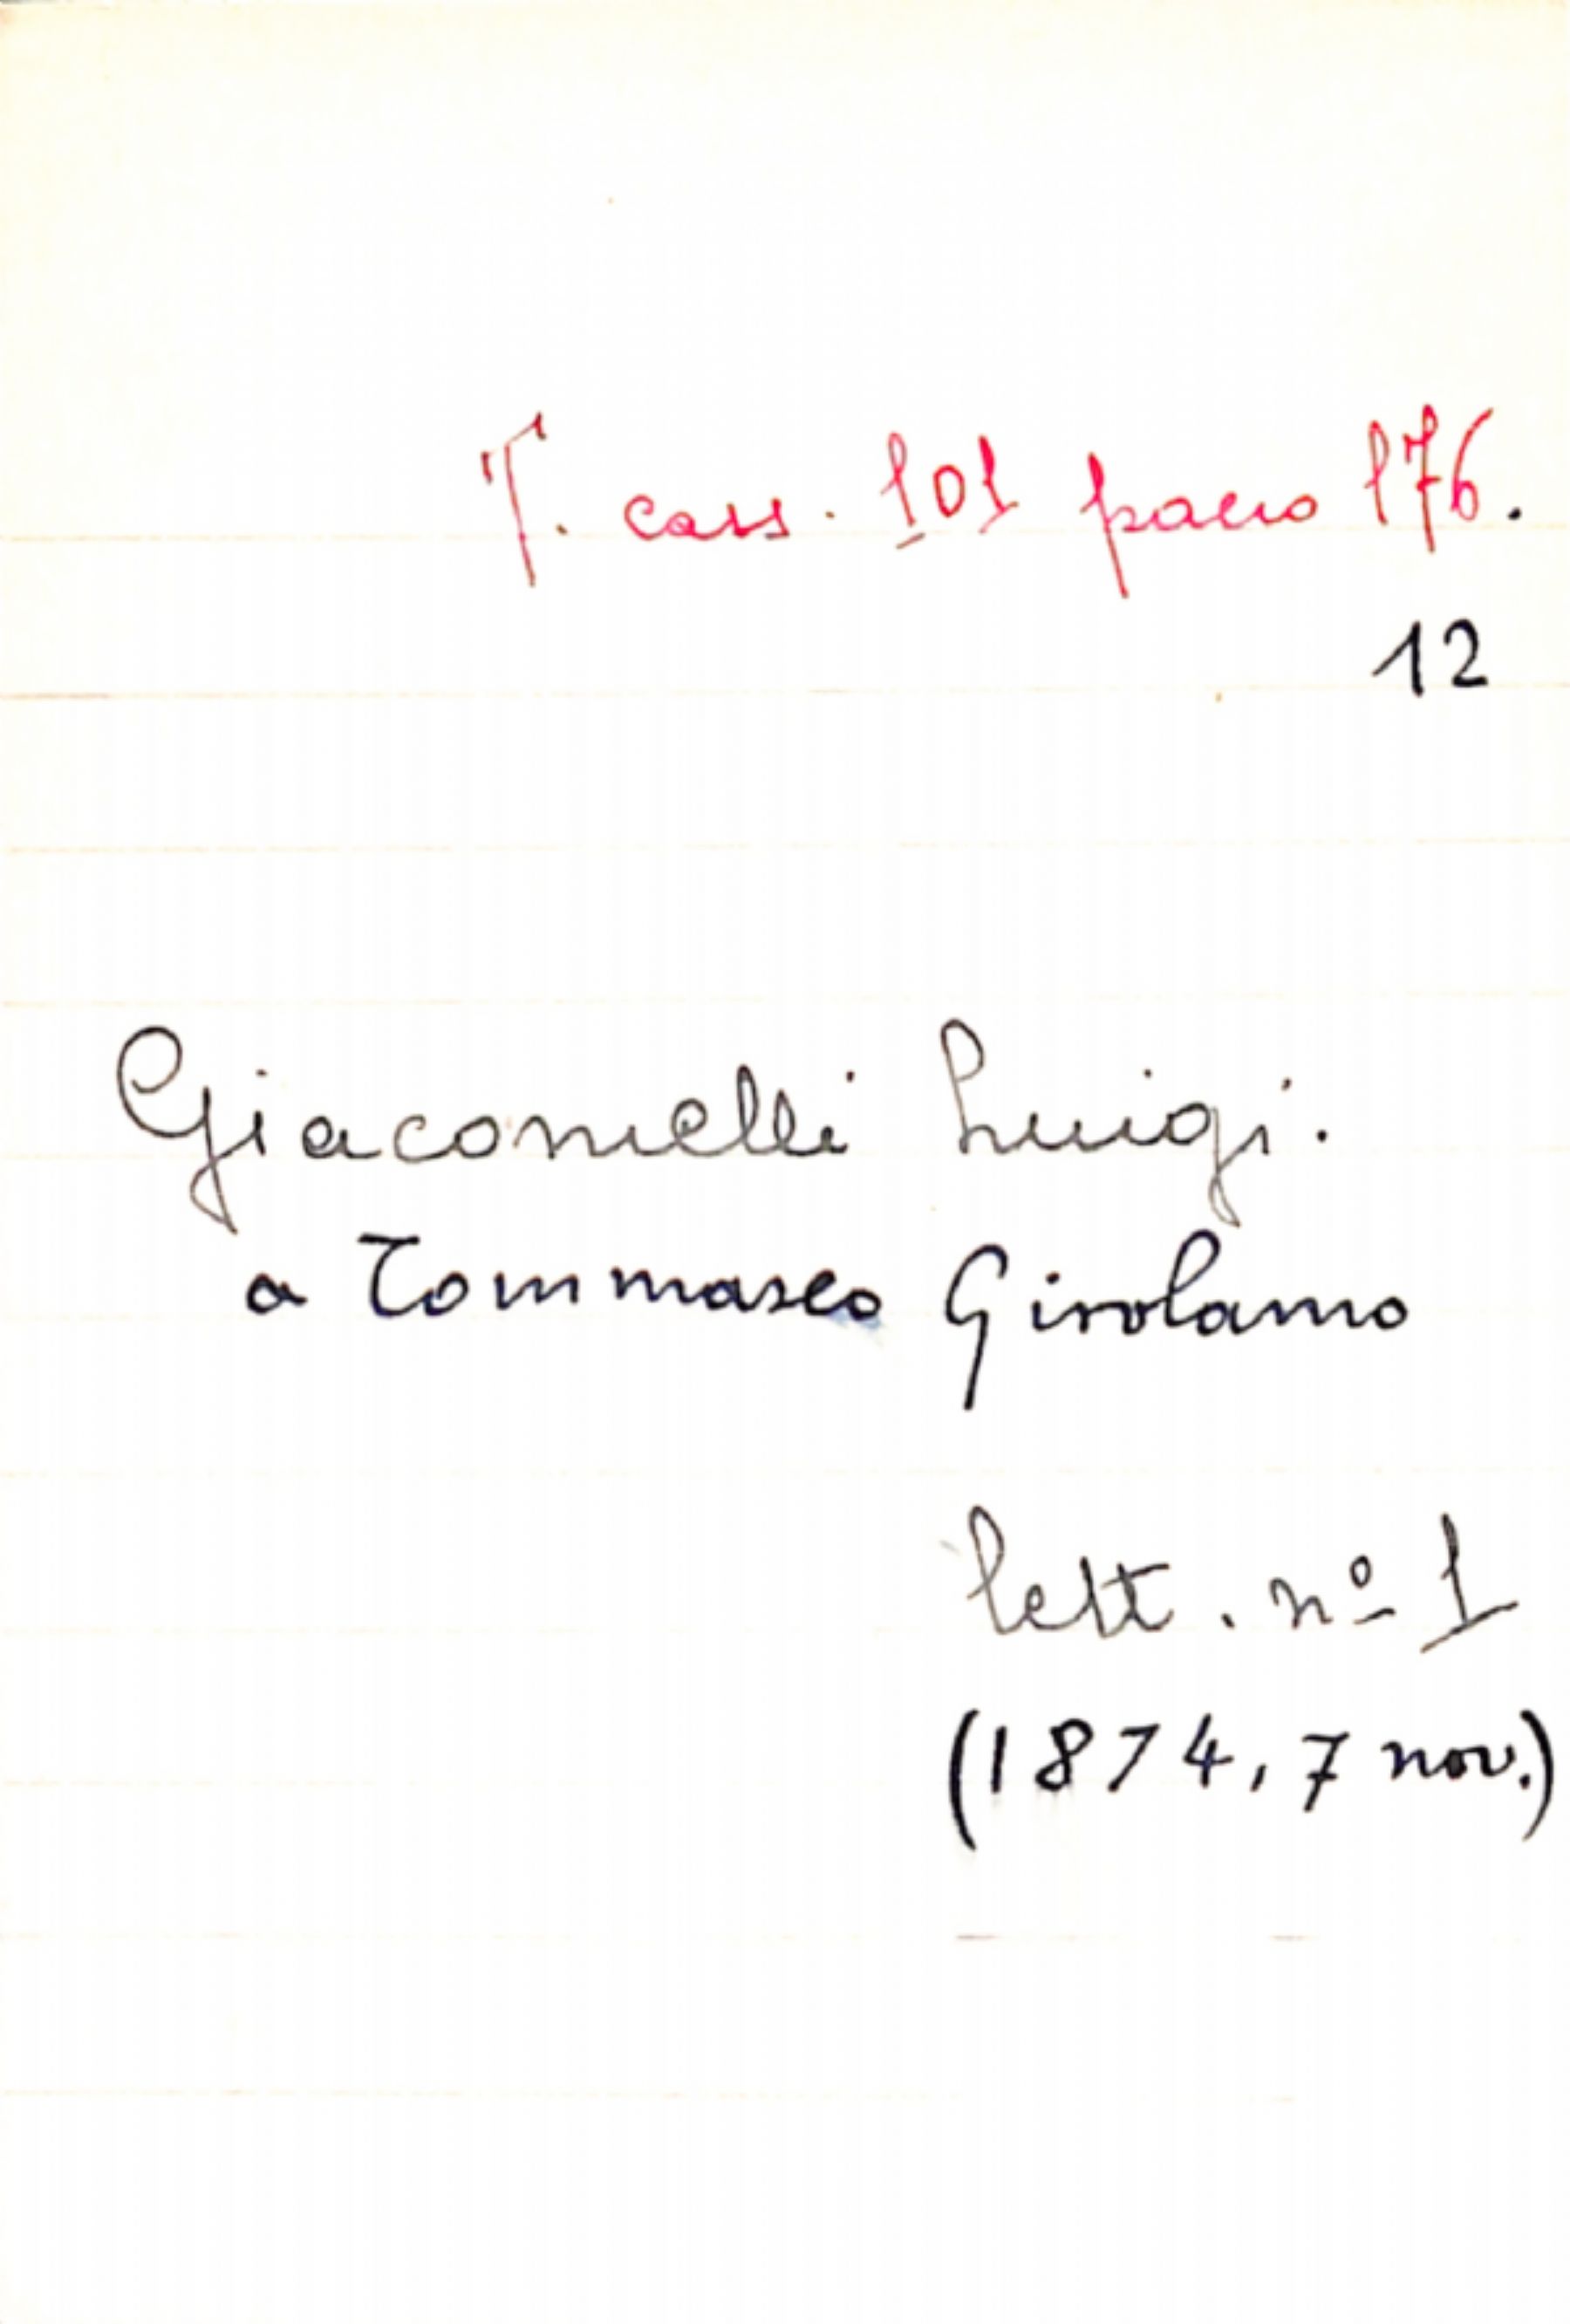 T. cass. 101 pacco 176.
12
Giacomelli Luigi.
a Tommaseo Girolamo
lett. nº 1
(1874, 7 nov.)